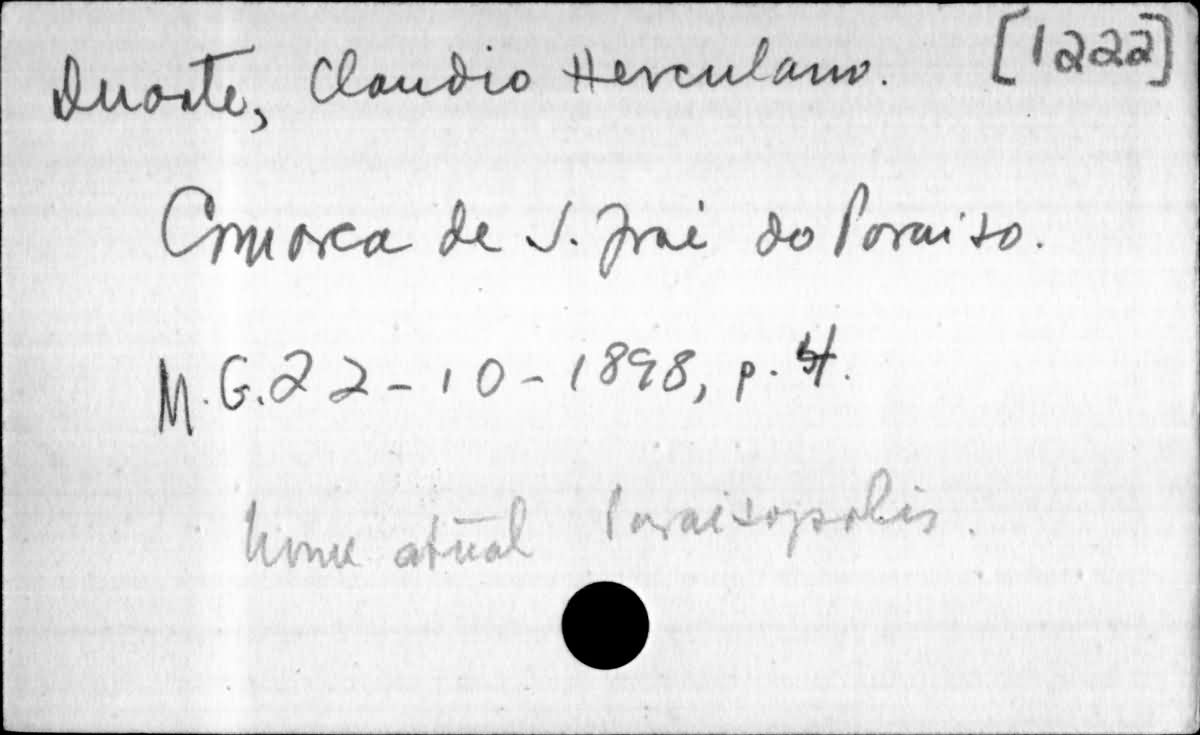 Duarte, Claudio Herculano. [1222]
Comarca de S. José do Paraiso.
M. G. 22-10-1898, p. 4.
nome atual Paraisopolis.